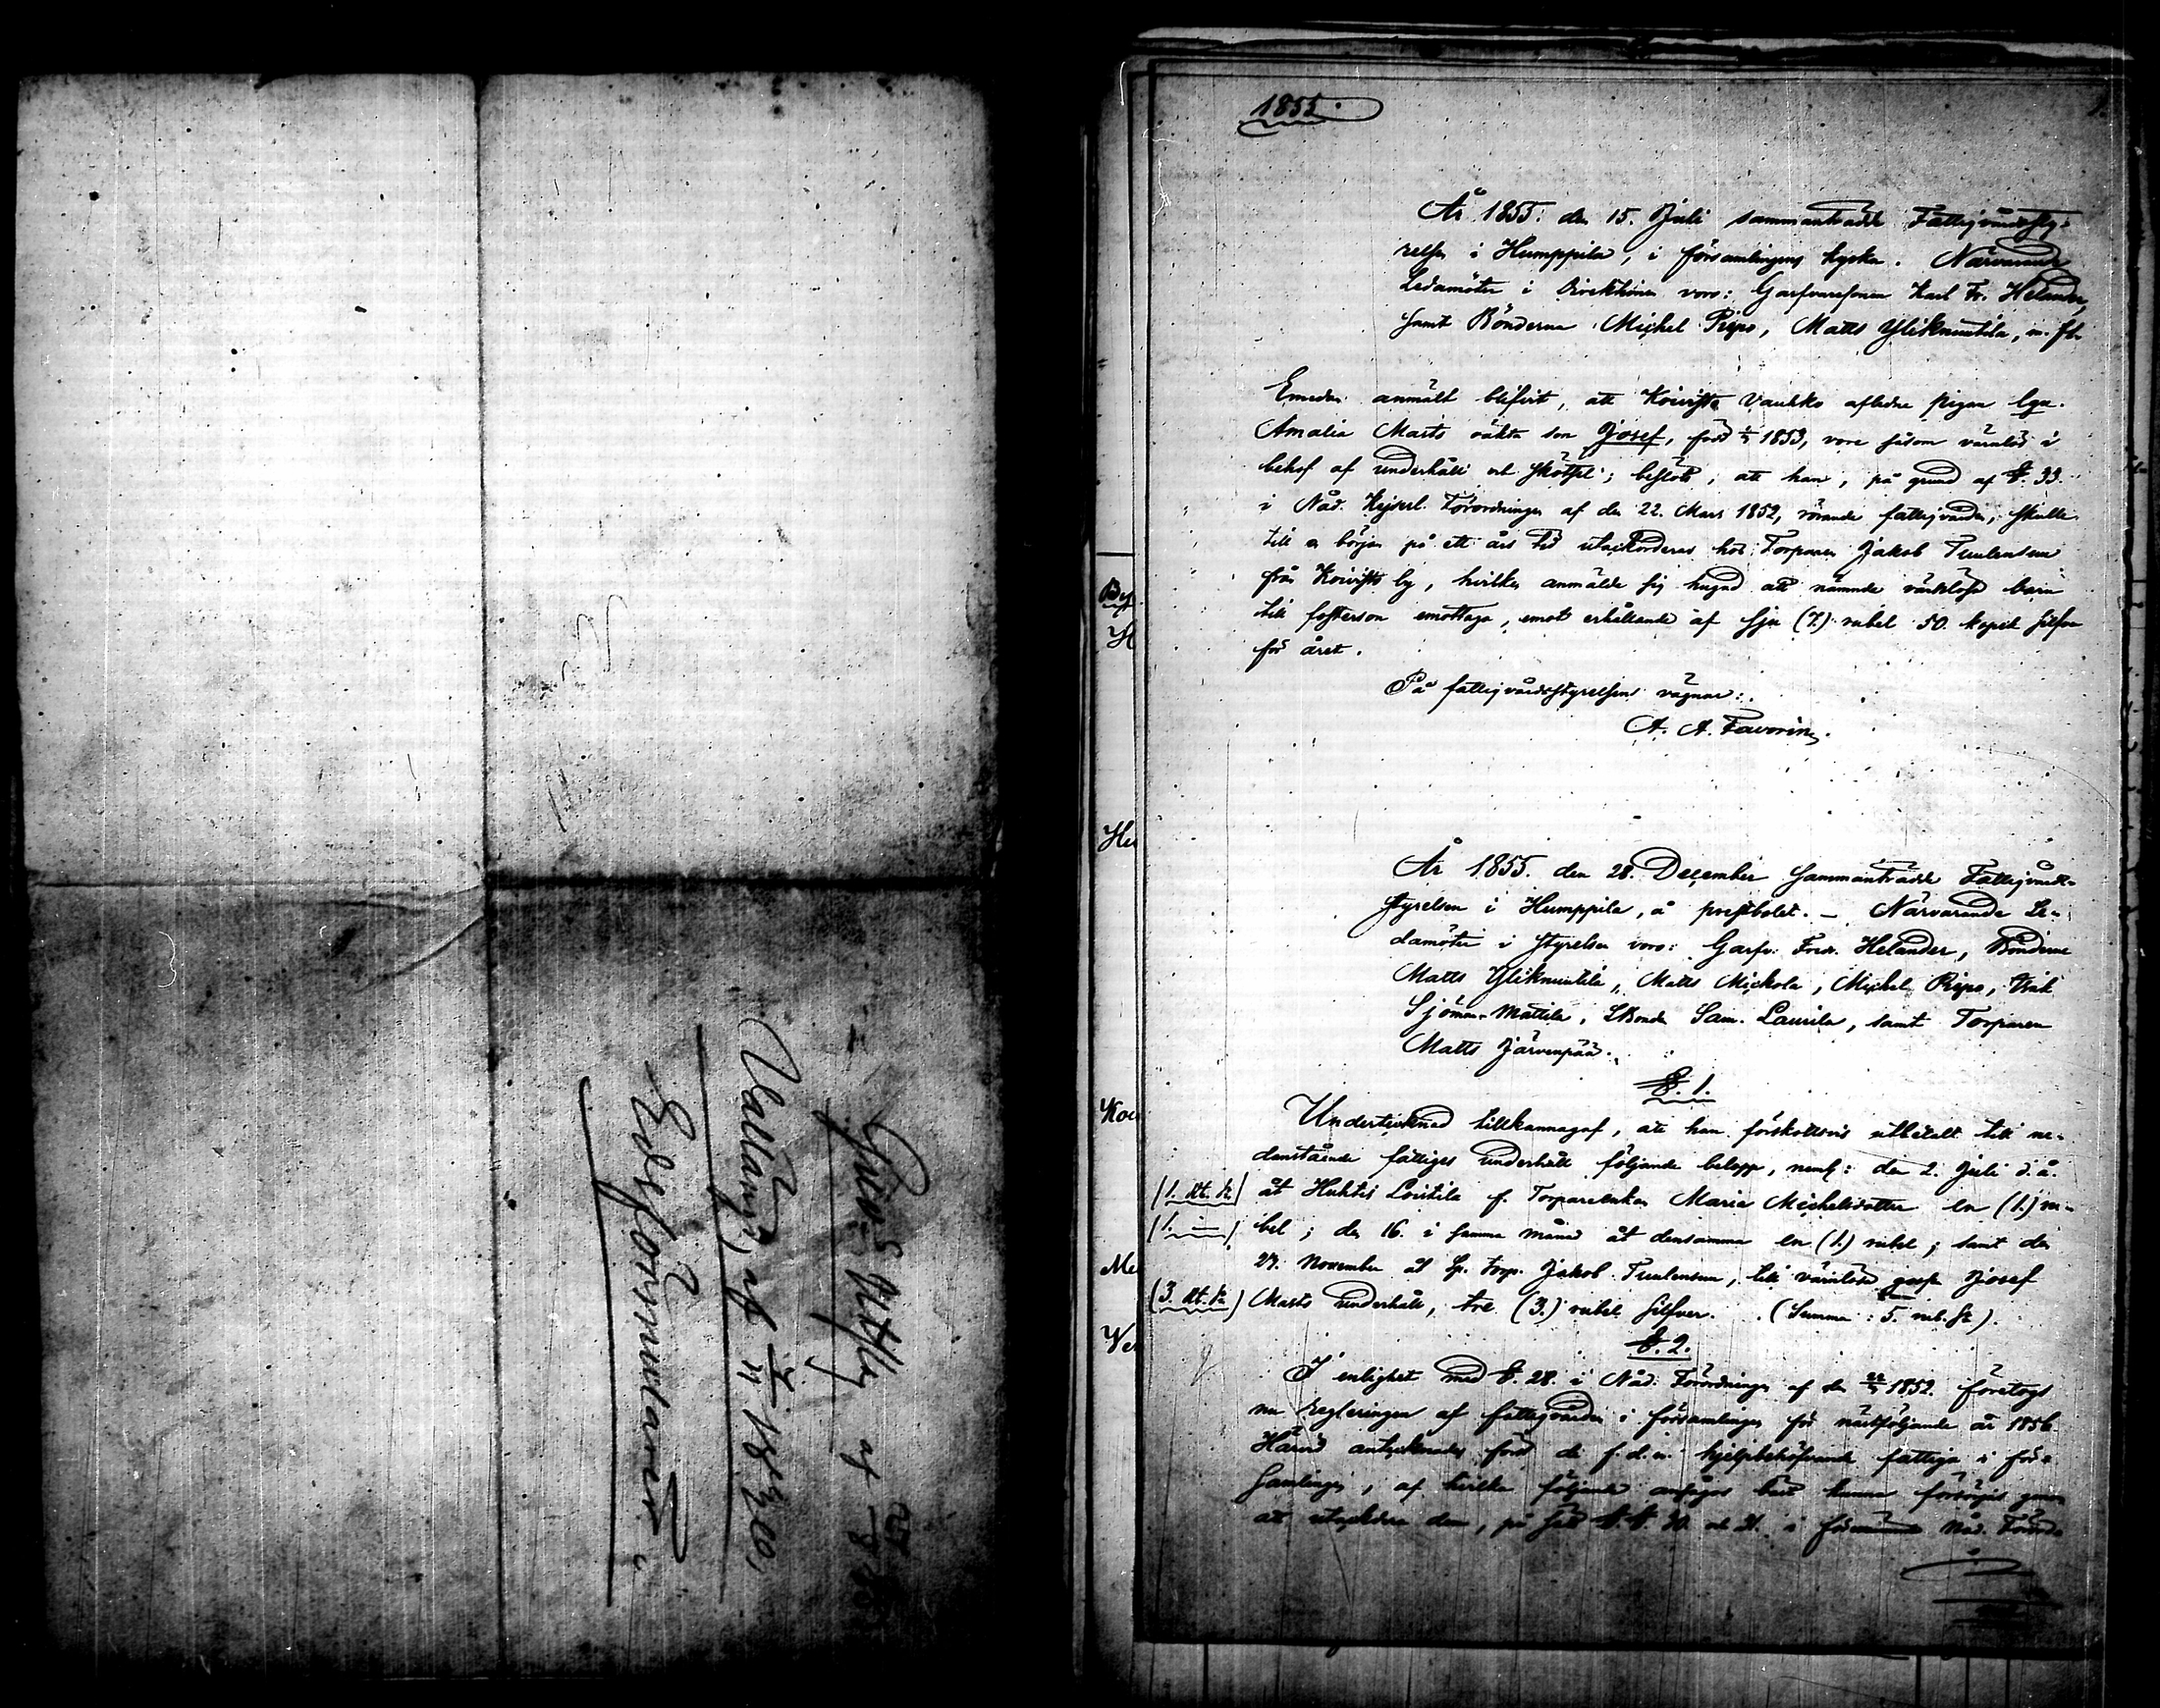 1855.
År 1855. den 15. Juli sammanträdde Fattigvårdssty-
relsen i Humppila, i församlingens kyrka. Närvarande
Ledamöter i Direktionen voro: Garfvaresonen Karl Fr. Helander,
samt Bönderne Michel Pispo, Matts Yliknuutila, m. fl.
Emedan anmält blifvit, att Koivisto Vaukko aflidne pigan
Amalia Marts oäkta son Josef, född 1853, vore såsom värnlös i
behof af underhåll och skötsel; beslöts, att han, på grund af §. 33.
i Nåd. Kejserl. Förordningen af den 22. Mars 1852, rörande fattigvården, skulle
till en början på ett års tid utackorderas hos Torparen Jakob Tuulensuu
från Koivisto by, hvilken anmälde sig hugad att nämnde värnlösa barn
till fosterson emottaga, emot erhållande af sju (7.) rubel 50. kopek silfver
för året.
På fattigvårdsstyrelsens vägnar:
A. A. Favorin.
År 1855. den 28. December sammanträdde Fattigvårds-
styrelsen i Humppila, å prestbolet. – Närvarande Le-
damöter i styrelsen voro: Garfv. Fredr. Helander, Bönderne
Matts Yliknuutila, Matts Mickola, Michel Pispo, Isak
Sjöman-Mattila, Sam. Laurila, samt Torparen
Matts Järvenpää.
§. 1.
Undertecknad tillkännagaf, att han förskottsvis utbetalt till ne-
danstående fattiges underhåll följande belopp, neml: den 2. Juli d. å.
(1. Rb. Sr) åt Huhtis f. Torpareenkan Maria Michelsdotter en (1.) ru-
(1. —) bel; den 16. i samma månad åt densamma en (1.) rubel; samt den
27. November åt Torp. Jakob Tuulensuu, till värnlöse goss. Josef
(3. Rb. Sr) Marts underhåll, tre (3.) rubel silfver. (Summa: 5. rub. Sr).
§. 2.
I enlighet med §. 28. i Nåd. Förordningen af den 22/3 1852. företogs
nu regleringen af fattigvården i församlingen för nästföljande år 1856.
Härvid antecknades först de f. d. n. hjelpbehöfvande fattiga i för-
samlingen, af hvilka följande ansågos bäst kunna försörjas genom
att utackordera dem, på sätt §. §. 30. och 31. i Nåd. Förord-
By
H
He
Koi
Me
Ve
af
Vallängd, af 1830,
Formulärer